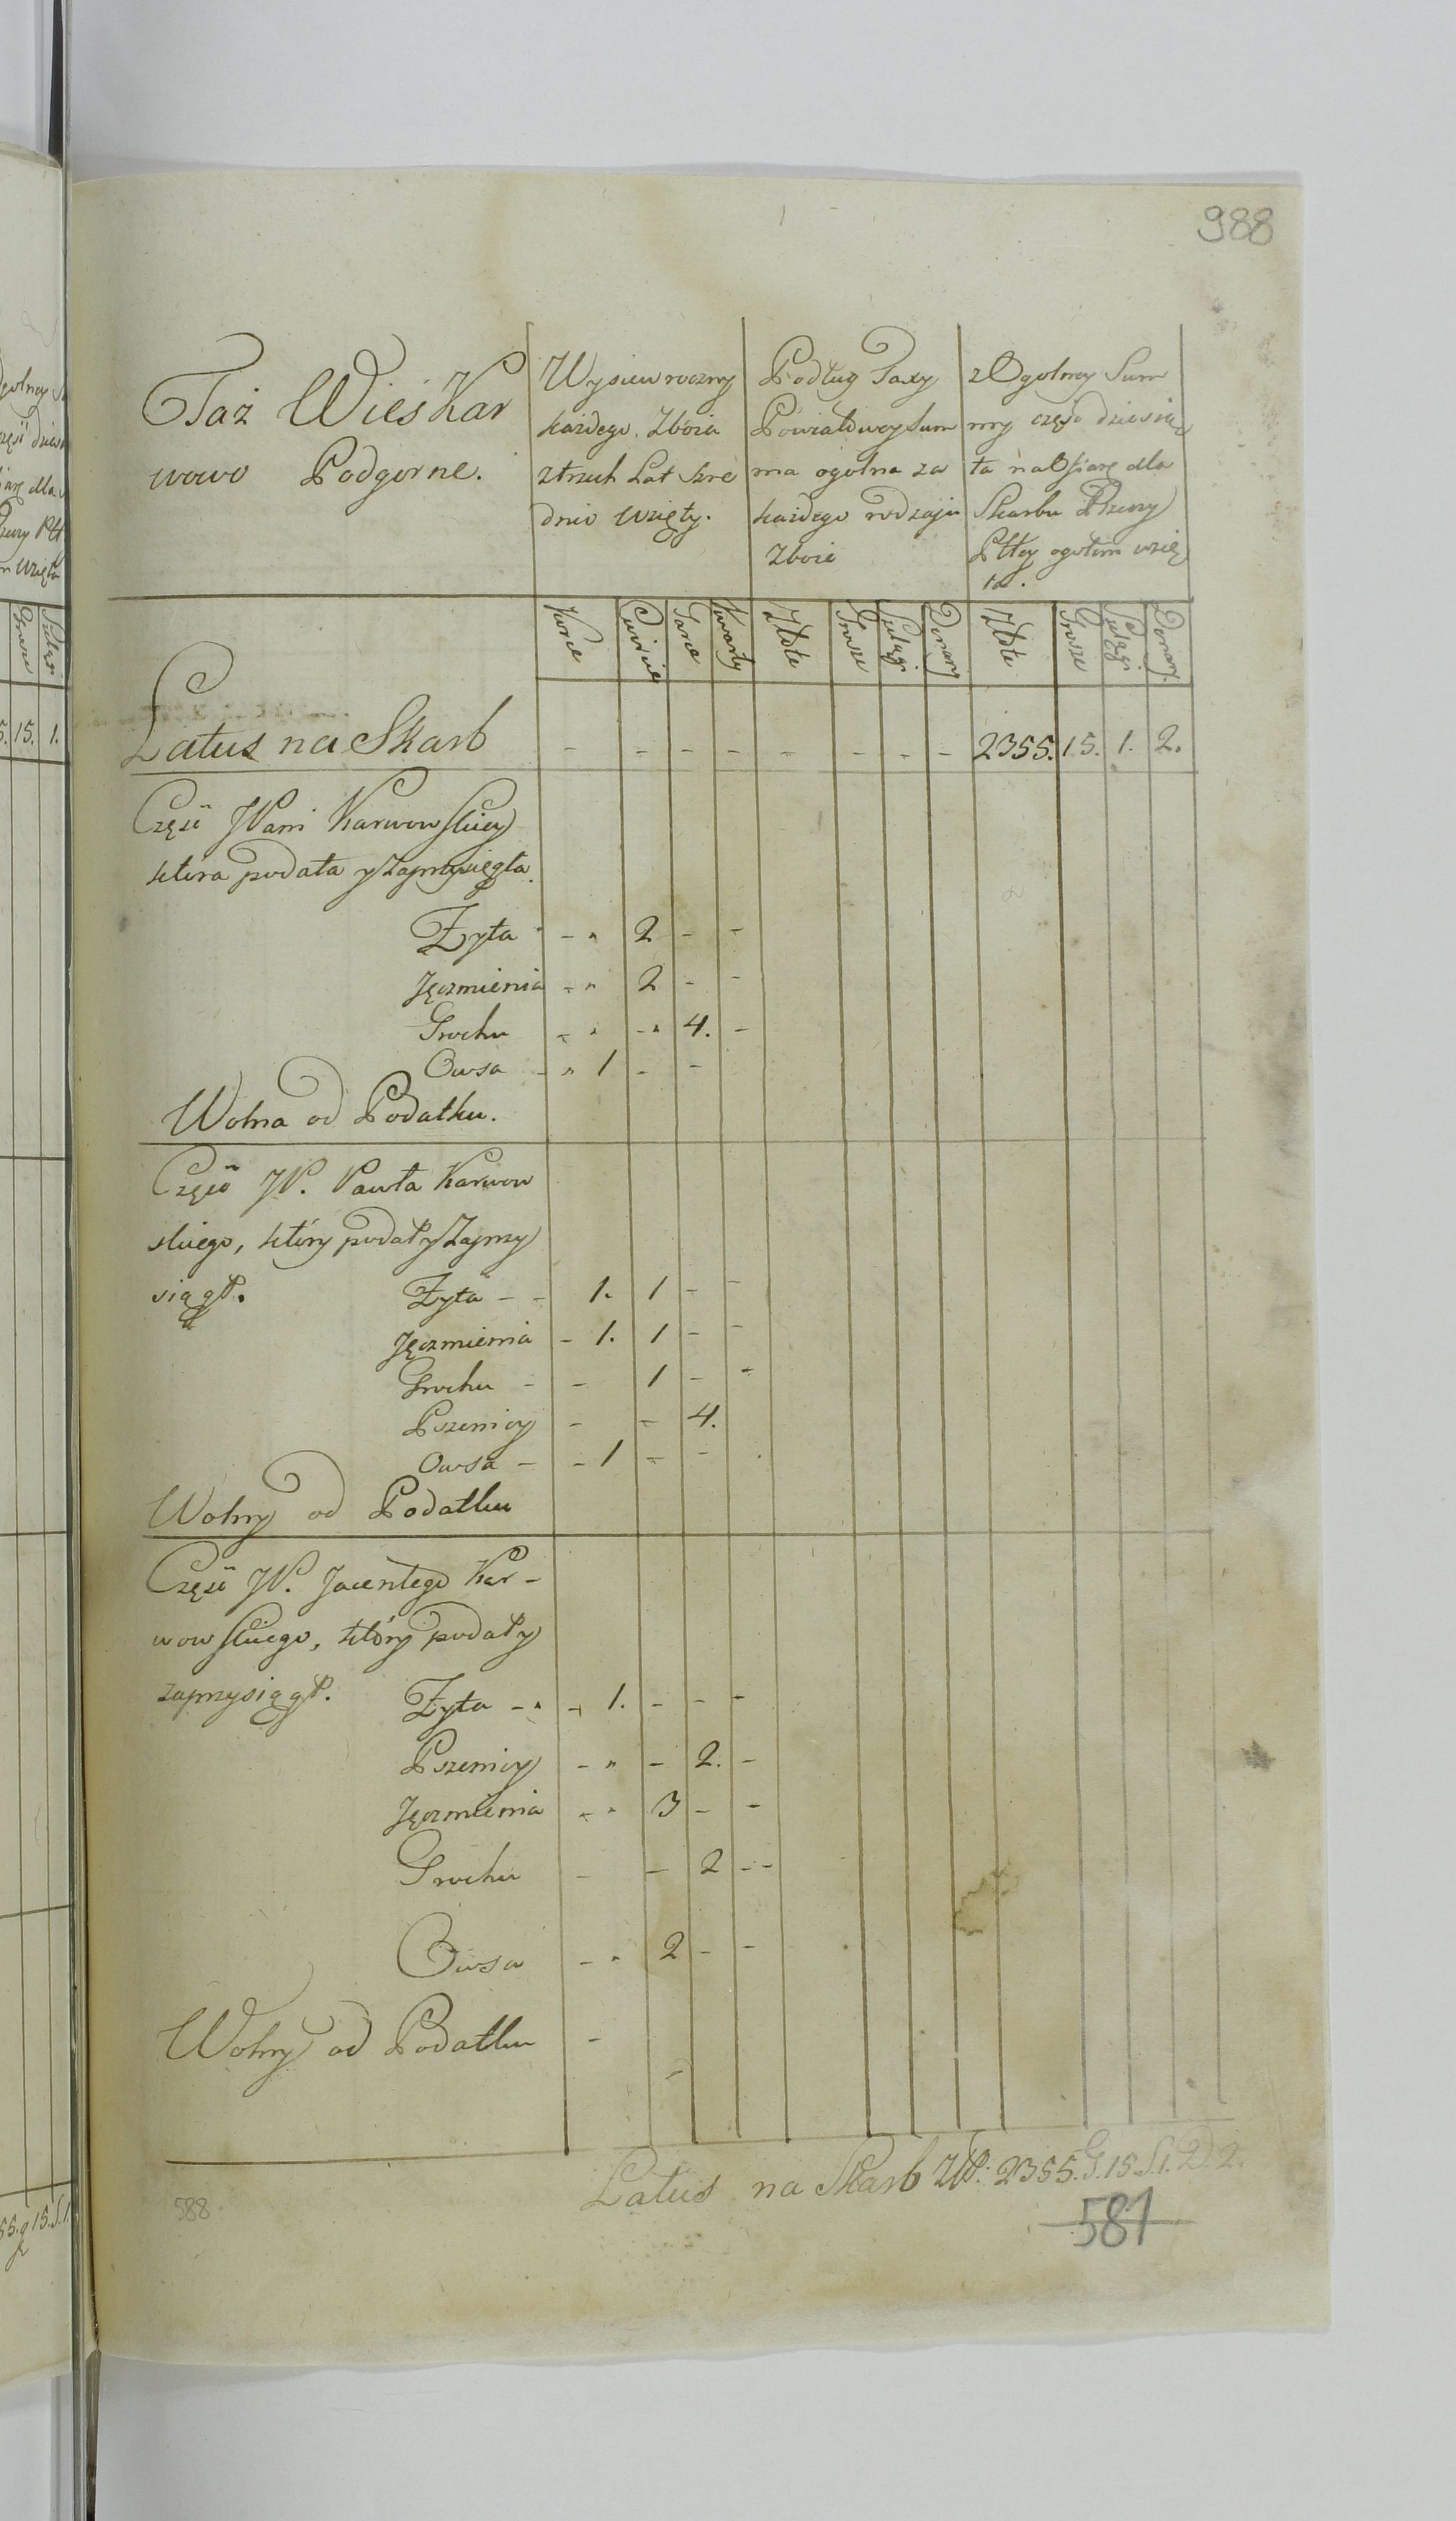 988
Taż Wieś Kar
wowo Podgorne.
Wysiew roczny
każdego Zboża
z trzech Lat śre
dnio wzięty.
Podług Taxy
Powiatowey Sum
ma ogolna za
każdego rodzaju
Zboże
z Ogolney Sum
my część dziesią
ta na Ofiarę dla
Skarbu Rzeczy
Pltey ogołem wzię
ta.
Korce Cwierci Garce Kwarty Złote Grosze Szelągi Denary Złote Grosze Szelągi Denary
Latus na Skarb - - - - - - - - 2355. 15. 1. 2.
Część JPani Karwowskiey
ktora podała y zaprzysięgła.
Żyta - " 2 - -
Jęczmienia - " 2 - -
Grochu - " - " 4. -
Owsa - " 1 - -
Wolna od Podatku.
Część JP. Pawła Karwow
skiego, który podał y zaprzy
siągł.
Żyta - - 1. 1 - -
Jęczmienia - 1. 1 - -
Grochu - - 1 - -
Pszenicy - - 4.
Owsa - - 1 - -
Wolny od Podatku
Część JP. Jacentego Kar-
wowskiego, który podał y
zaprzysiągł.
Żyta - " - 1. - - -
Pszenicy - " - 2. -
Jęczmienia - " 3 - -
Grochu - - 2 - -
Owsa - " 2 - -
Wolny od Podatku -
Latus na Skarb Złł: 2355. G. 15. S. 1. D. 2.
588
581